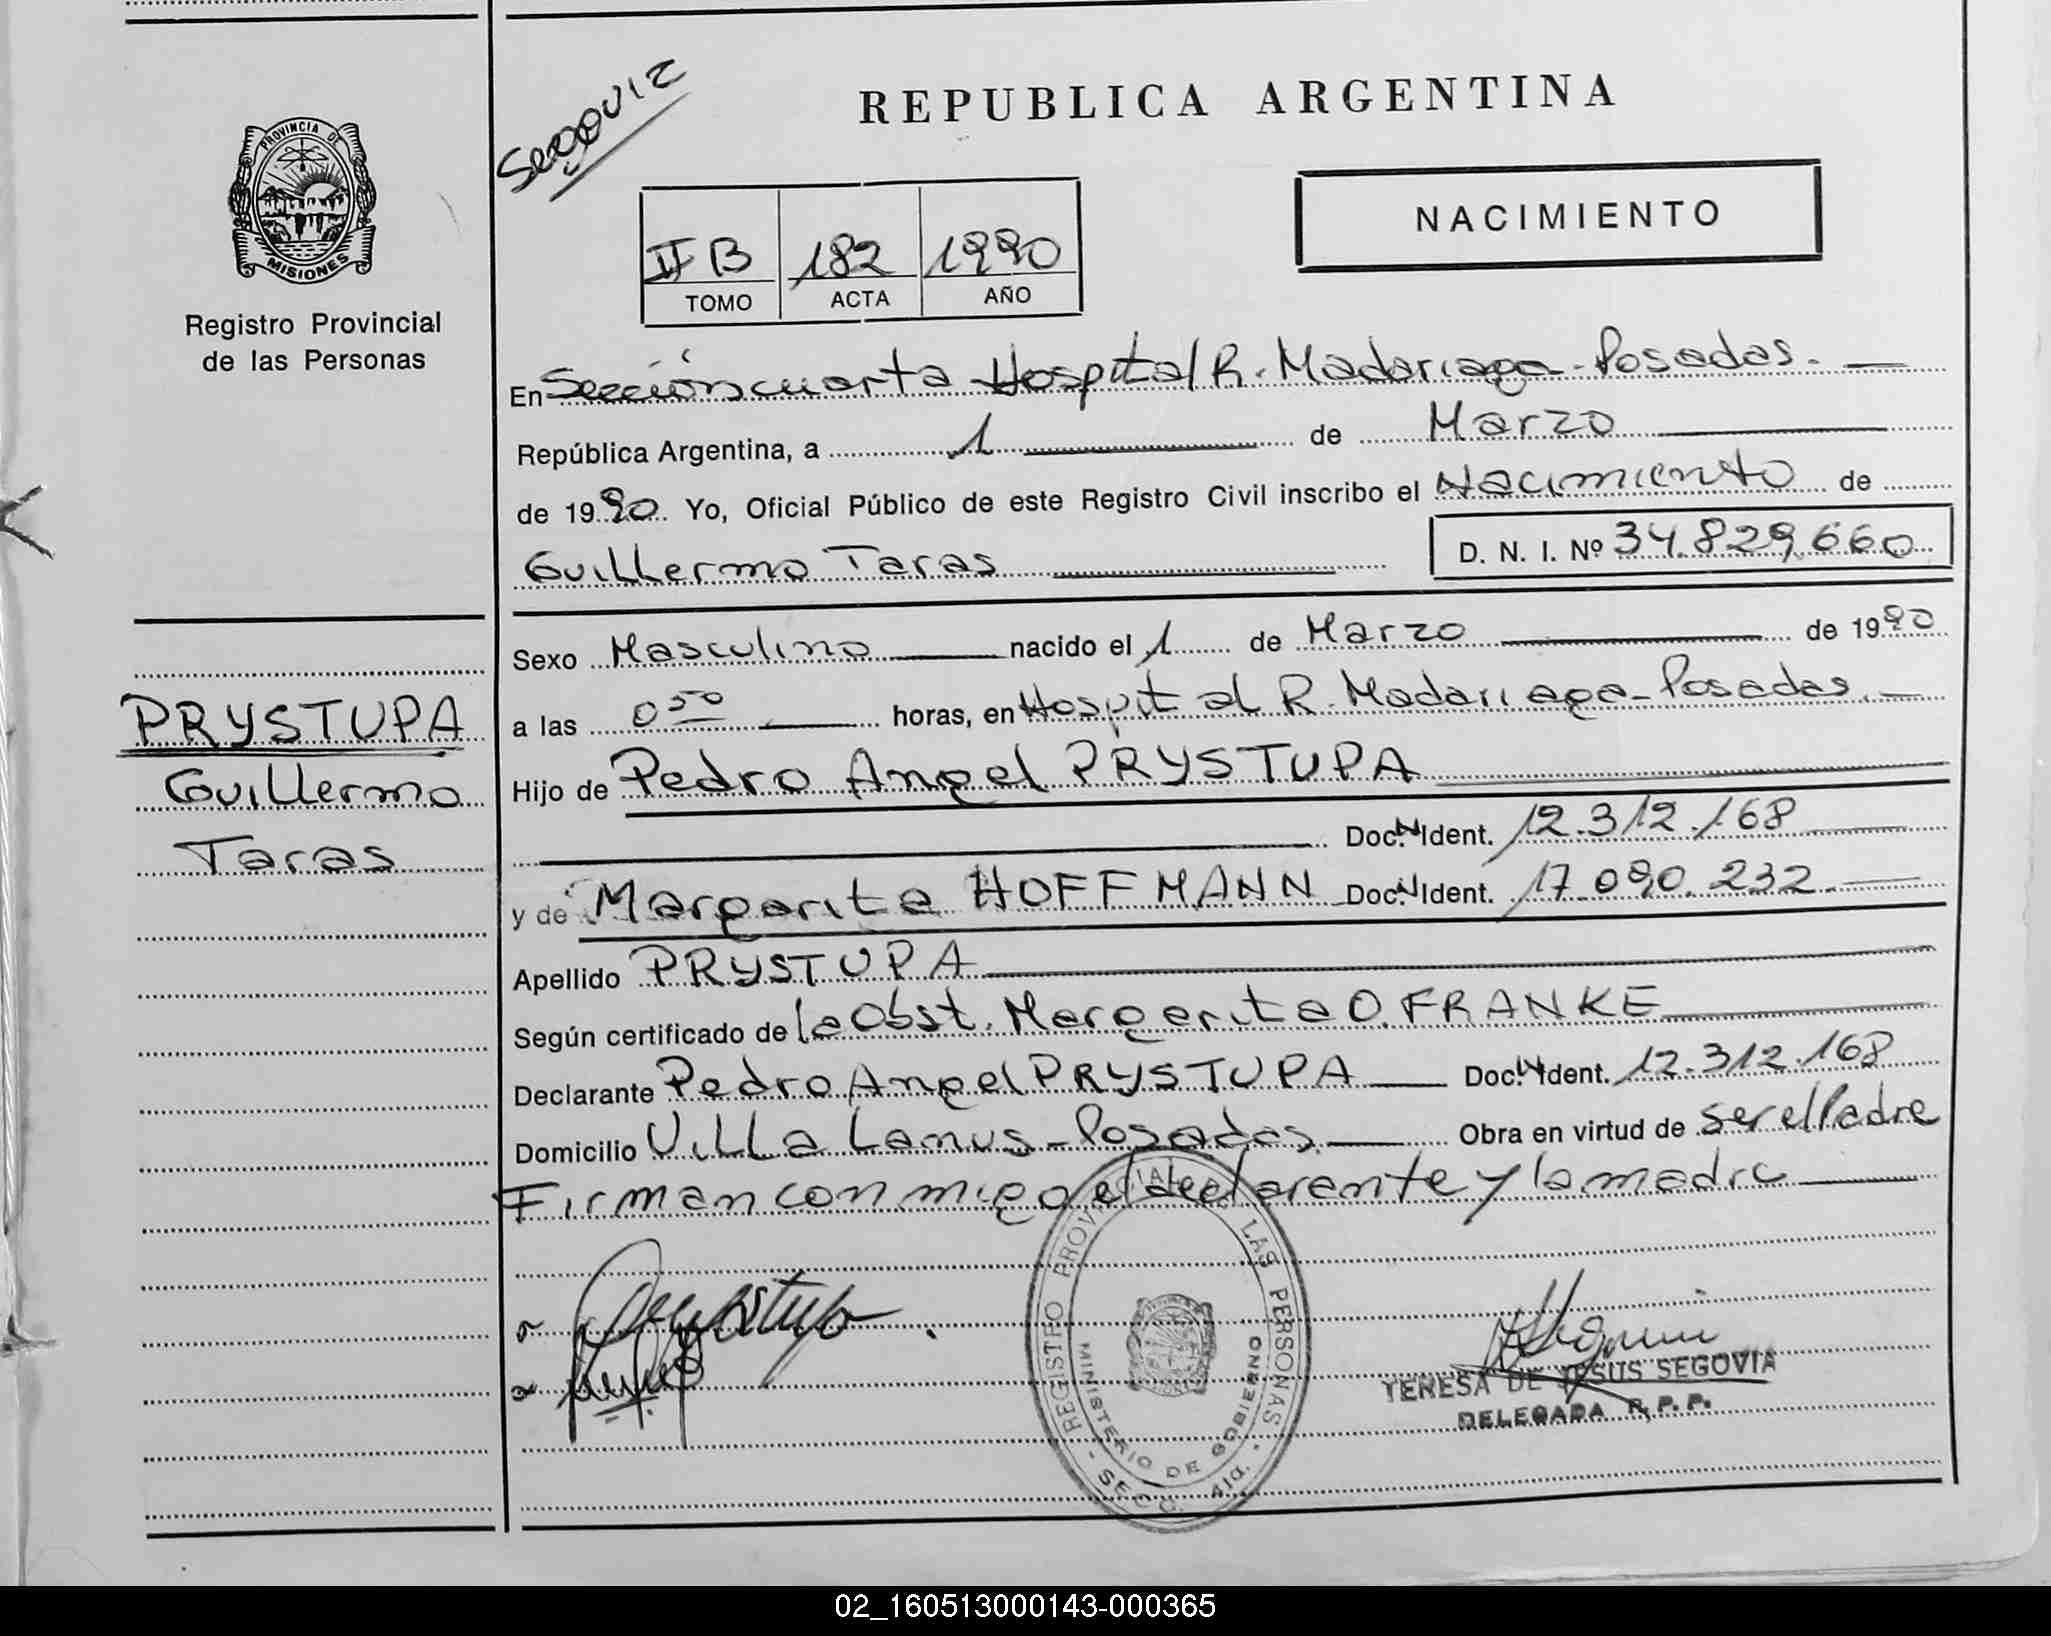 PROVINCIA DE
MISIONES
Registro Provincial
de las Personas
PRYSTUPA
Guillermo
Taras
REPUBLICA ARGENTINA
NACIMIENTO
II B 182 1990
TOMO ACTA AÑO
En Sección cuarta Hospital R. Madariaga - Posadas.
República Argentina, a 1 de Marzo
de 1990 Yo, Oficial Público de este Registro Civil inscribo el Nacimiento de
Guillermo Taras D. N. I. Nº 34.829.660
Sexo Masculino nacido el 1 de Marzo de 1990
a las 0 50 horas, en Hospital R. Madariaga - Posadas.
Hijo de Pedro Angel PRYSTUPA
Doc. N Ident. 12.312.168
y de Margarita HOFFMANN Doc. N Ident. 17.090.232
Apellido PRYSTUPA
Según certificado de la Obst. Margarita O. FRANKE
Declarante Pedro Angel PRYSTUPA Doc. N Ident. 12.312.168
Domicilio Villa Lanus - Posadas. Obra en virtud de ser el Padre
Firman conmigo el declarante y la madre
REGISTRO PROVINCIAL DE LAS PERSONAS
MINISTERIO DE GOBIERNO
- SECC. 4ta. -
TERESA DE JESUS SEGOVIA
DELEGADA R. P. P.
02_160513000143-000365